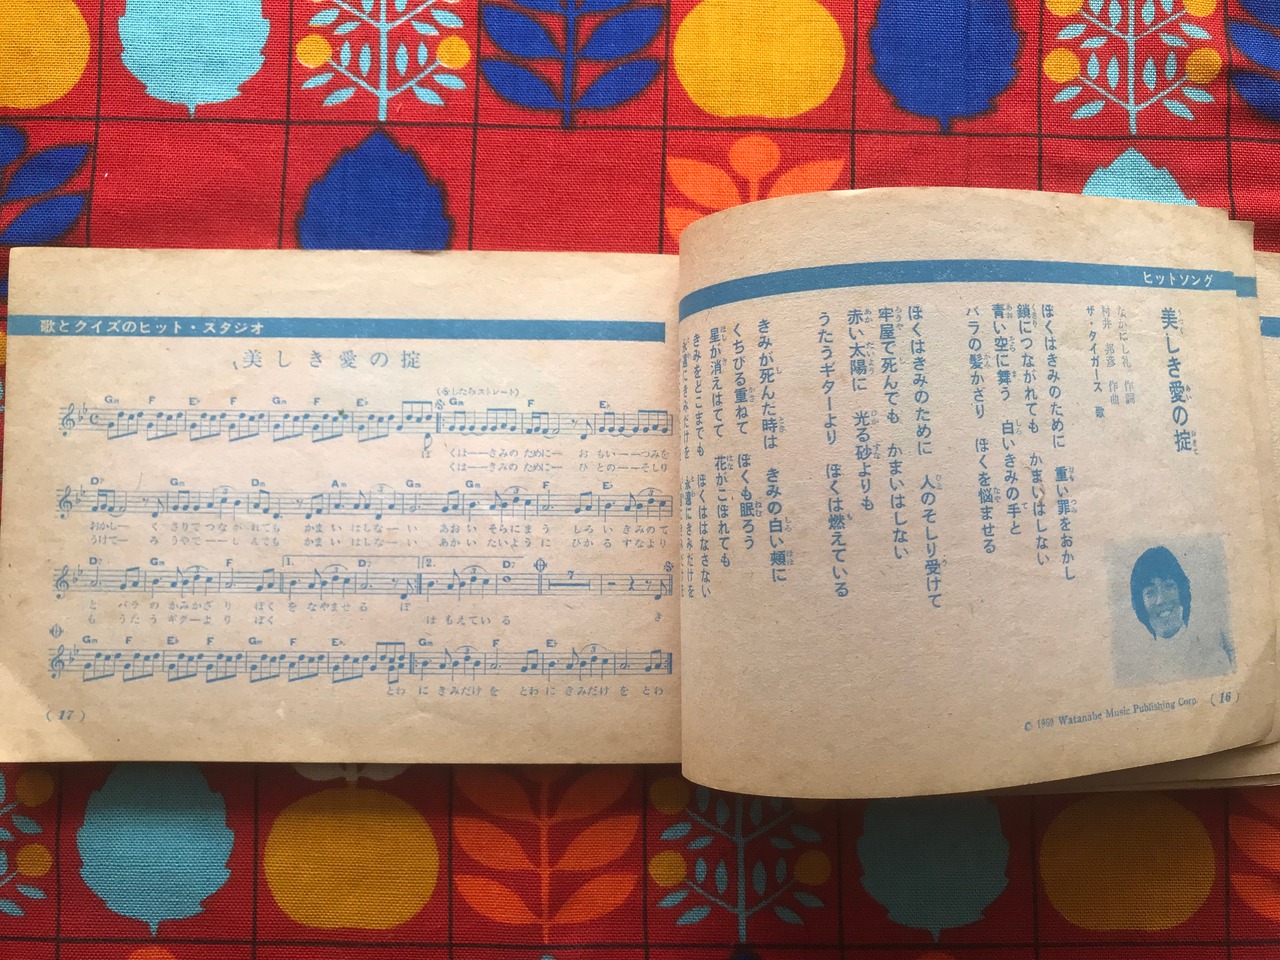 ヒットソング
美しき愛の掟
なかにし礼 作詞
村井 邦彦 作曲
ザ・タイガース 歌
ぼくはきみのために 重い罪をおかし
鎖につながれても かまいはしない
青い空に舞う 白いきみの手と
バラの髪かざり ぼくを悩ませる
ぼくはきみのために 人のそしり受けて
牢屋で死んでも かまいはしない
赤い太陽に 光る砂よりも
うたうギターより ぼくは燃えている
きみが死んだ時は きみの白い頬に
くちびる重ねて ぼくも眠ろう
星が消えはてて 花がこぼれても
きみをどこまでも ぼくははなさない
永遠にきみだけを 永遠にきみだけを
© 1969 Watanabe Music Publishing Corp.
(16)
歌とクイズのヒット・スタジオ
美しき愛の掟
Gm F E♭ F Gm F E♭ Gm F E♭
ぼ くは——きみの ために— お もい——つみを
くは——きみの ために— ひ との——そしり
D7 Gm Dm Am Gm Gm F
おかし— く さりで つな がれても かま い はしな— い あおい そらにま う しろ い きみの て
うけて— ろ うやで——し んでも かま い はしな— い あかい たいよう に ひかる すなより
D7 Gm F Dm 1. D7 2. D7 7
と バラ の かみかざ り ぼく を なやませ る ぼ
も うたう ギターよ り ぼく は もえてい る き
Gm F E♭ F Gm F E♭ Gm F E♭
とわ に きみだけ を とわ に きみだけ を とわ
(17)